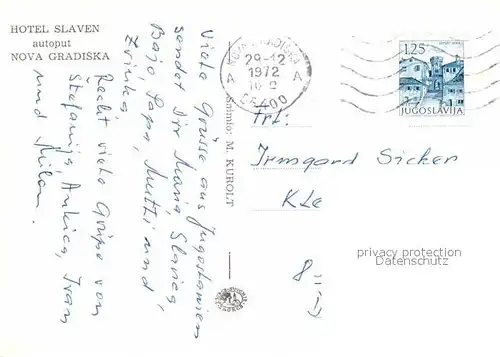 HOTEL SLAVEN
autoput
NOVA GRADIŠKA
Viele Grüsse aus Jugoslawien
sendet Dir Maria, Slavica,
Bajo Papa, Mutti und
Zvinka
Recht viele Grüße von
Štefanija, Ankica, Ivan
und Milan.
Snimio: M. KUROLT
NOVA GRADIŠKA
29-12
1972
A A
55400
1.25
JUGOSLAVIJA
Frl.
Irmgard Sicker
Kle
privacy protection
Datenschutz
8